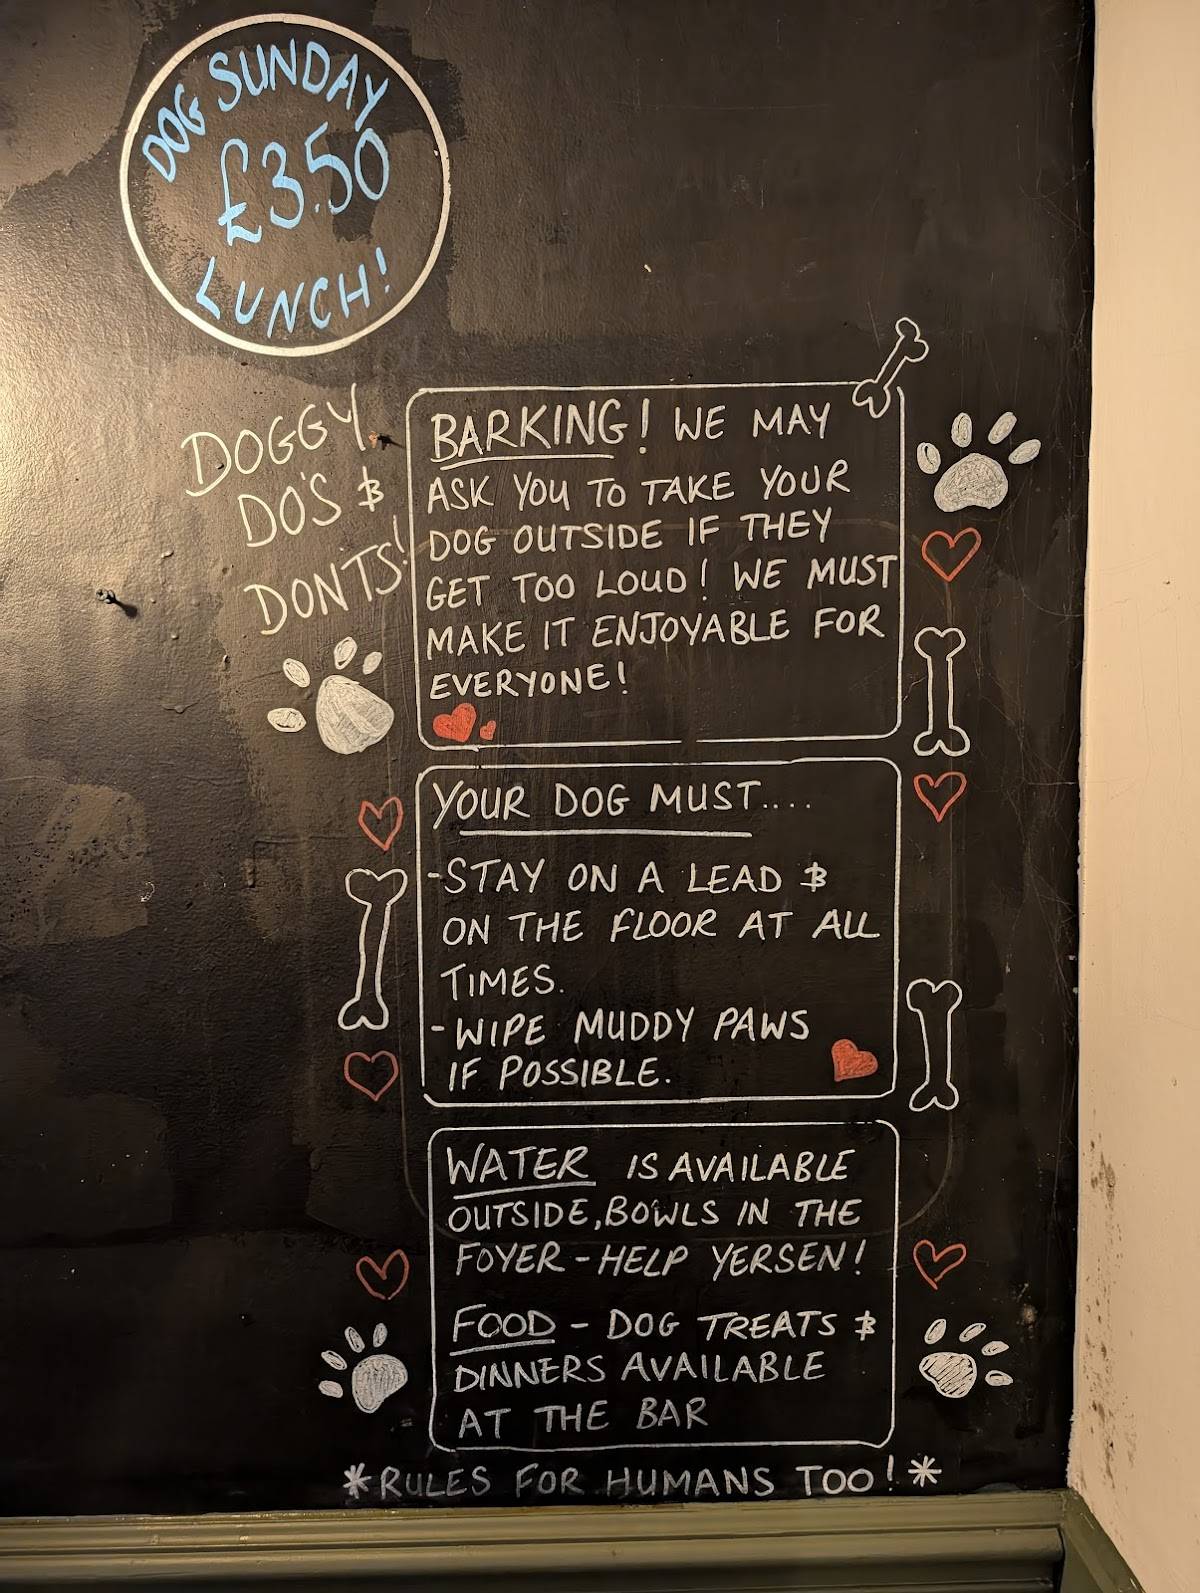 DOG SUNDAY
£3.50
LUNCH!
DOGGY
DO'S &
DONTS!
BARKING! WE MAY
ASK YOU TO TAKE YOUR
DOG OUTSIDE IF THEY
GET TOO LOUD! WE MUST
MAKE IT ENJOYABLE FOR
EVERYONE!
YOUR DOG MUST....
-STAY ON A LEAD &
ON THE FLOOR AT ALL
TIMES.
-WIPE MUDDY PAWS
IF POSSIBLE.
WATER IS AVAILABLE
OUTSIDE, BOWLS IN THE
FOYER - HELP YERSEN!
FOOD - DOG TREATS &
DINNERS AVAILABLE
AT THE BAR
*RULES FOR HUMANS TOO!*